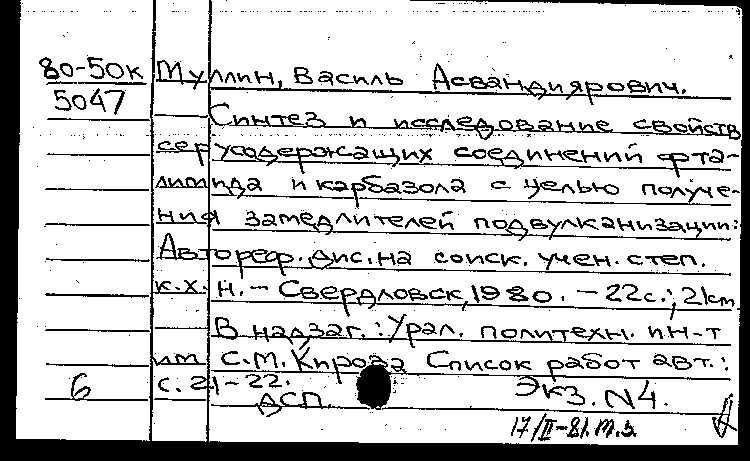 80-50к Муллин, Василь Асвандиярович.
5047
Синтез и исследование свойств
серусодержащих соединений фта-
лимида и карбазола с целью получе-
ния замедлителей подвулканизации:
Автореф. дис. на соиск. учен. степ.
к.х.н. - Свердловск, 1980. - 22с.; 21см
В надзаг.: Урал. политехн. ин-т
им С.М. Кирова Список работ авт.:
6 с. 21-22.
ДСП. Экз. N4.
17/II-81. т.з.